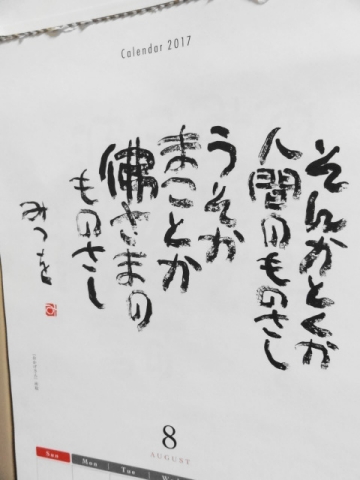 Calendar 2017
そんかとくか
人間のものさし
うそか
まことか
佛さまの
ものさし
みつを
8
AUGUST
Sun
Mon
Tue